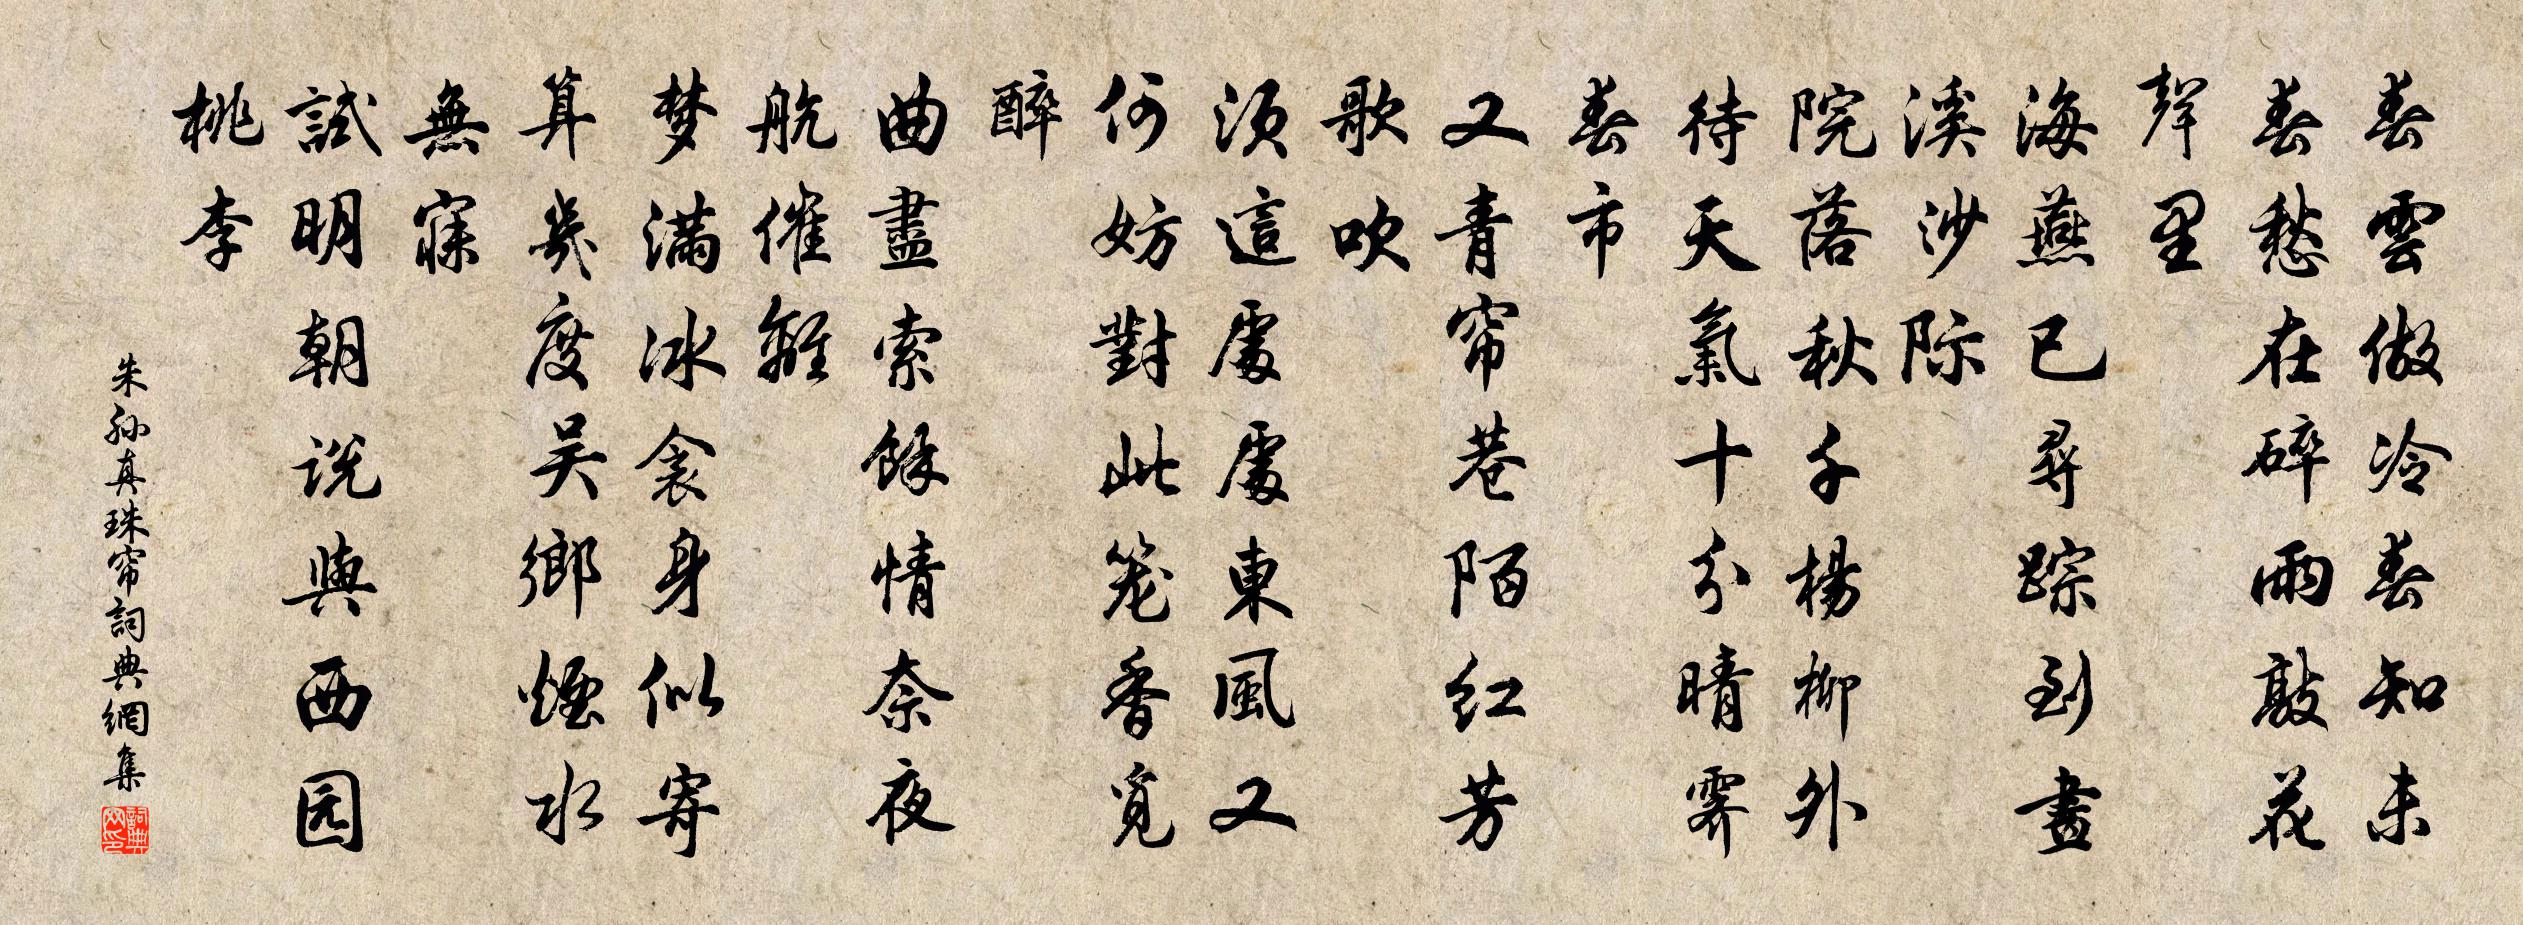 春雲做冷春知未
春愁在碎雨敲花
聲里
海燕已尋踪到畫
溪沙际
院落秋千楊柳外
待天氣十分晴霽
春市
又青帘巷陌红芳
歌吹
須這處處東風又
何妨對此笼香覓
醉
曲盡索餘情奈夜
航催離
梦满冰衾身似寄
算幾度吴鄉煙水
無寐
試明朝说與西园
桃李
朱孙真珠帘詞典網集
詞典网印